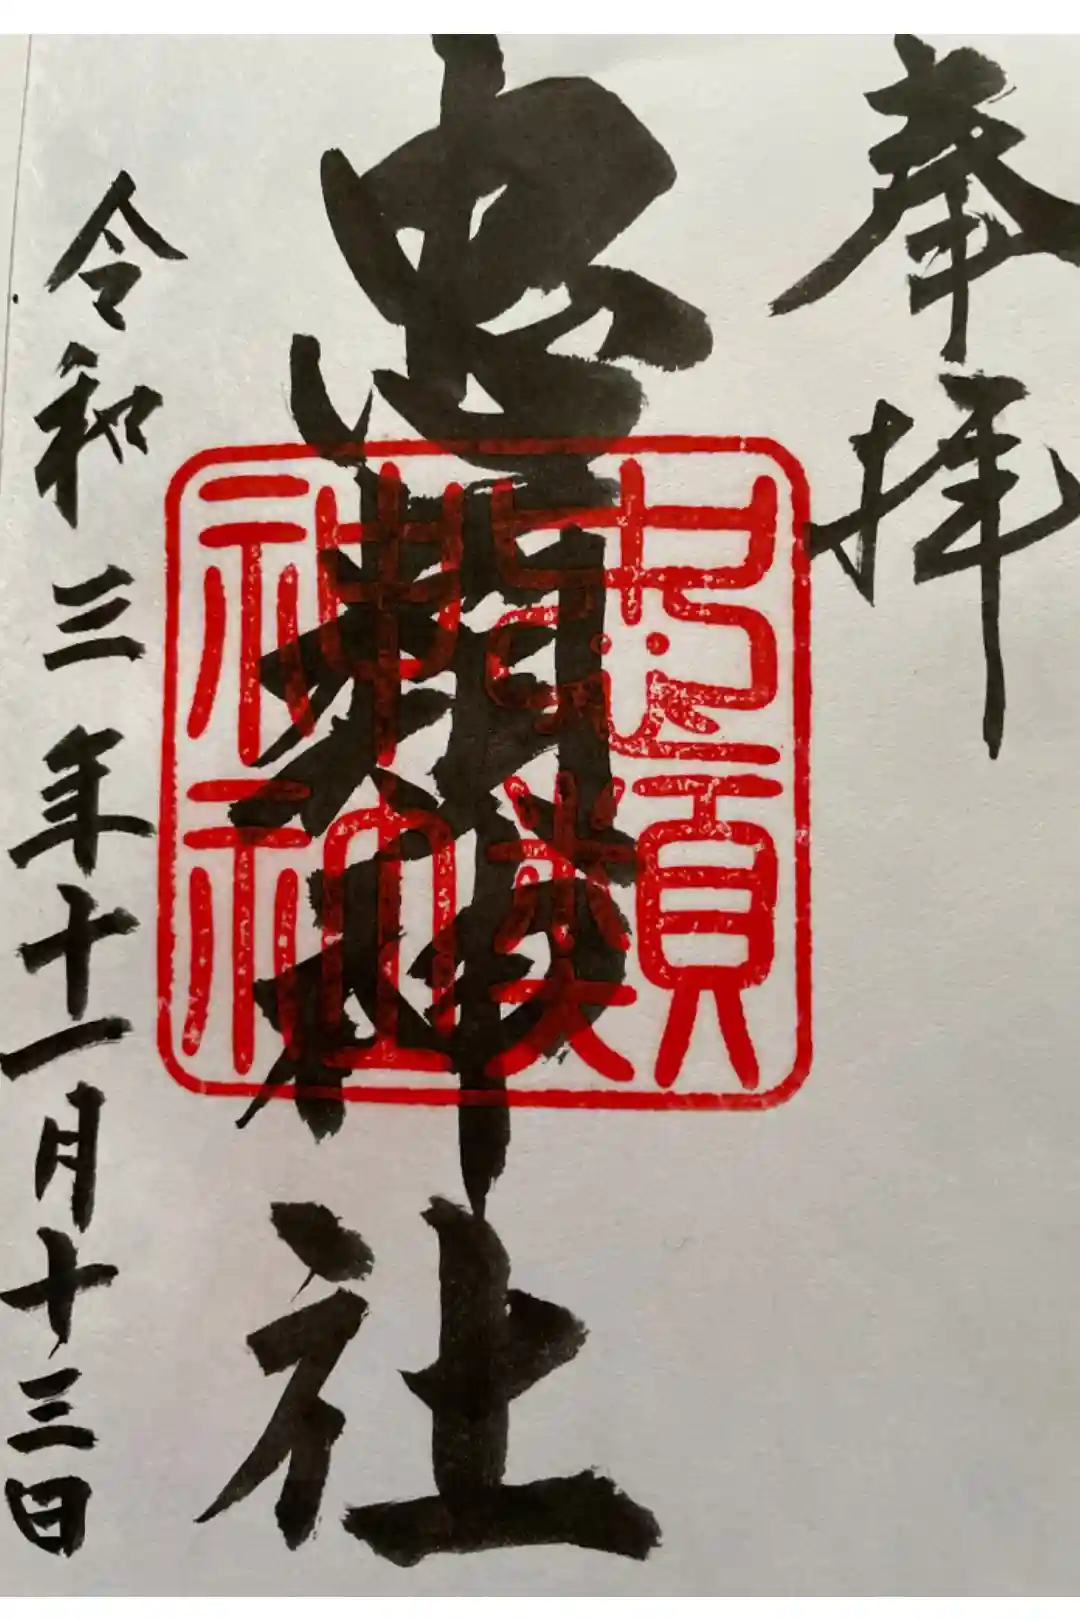 奉拝
忠類神社
令和三年十一月十三日
類
神社